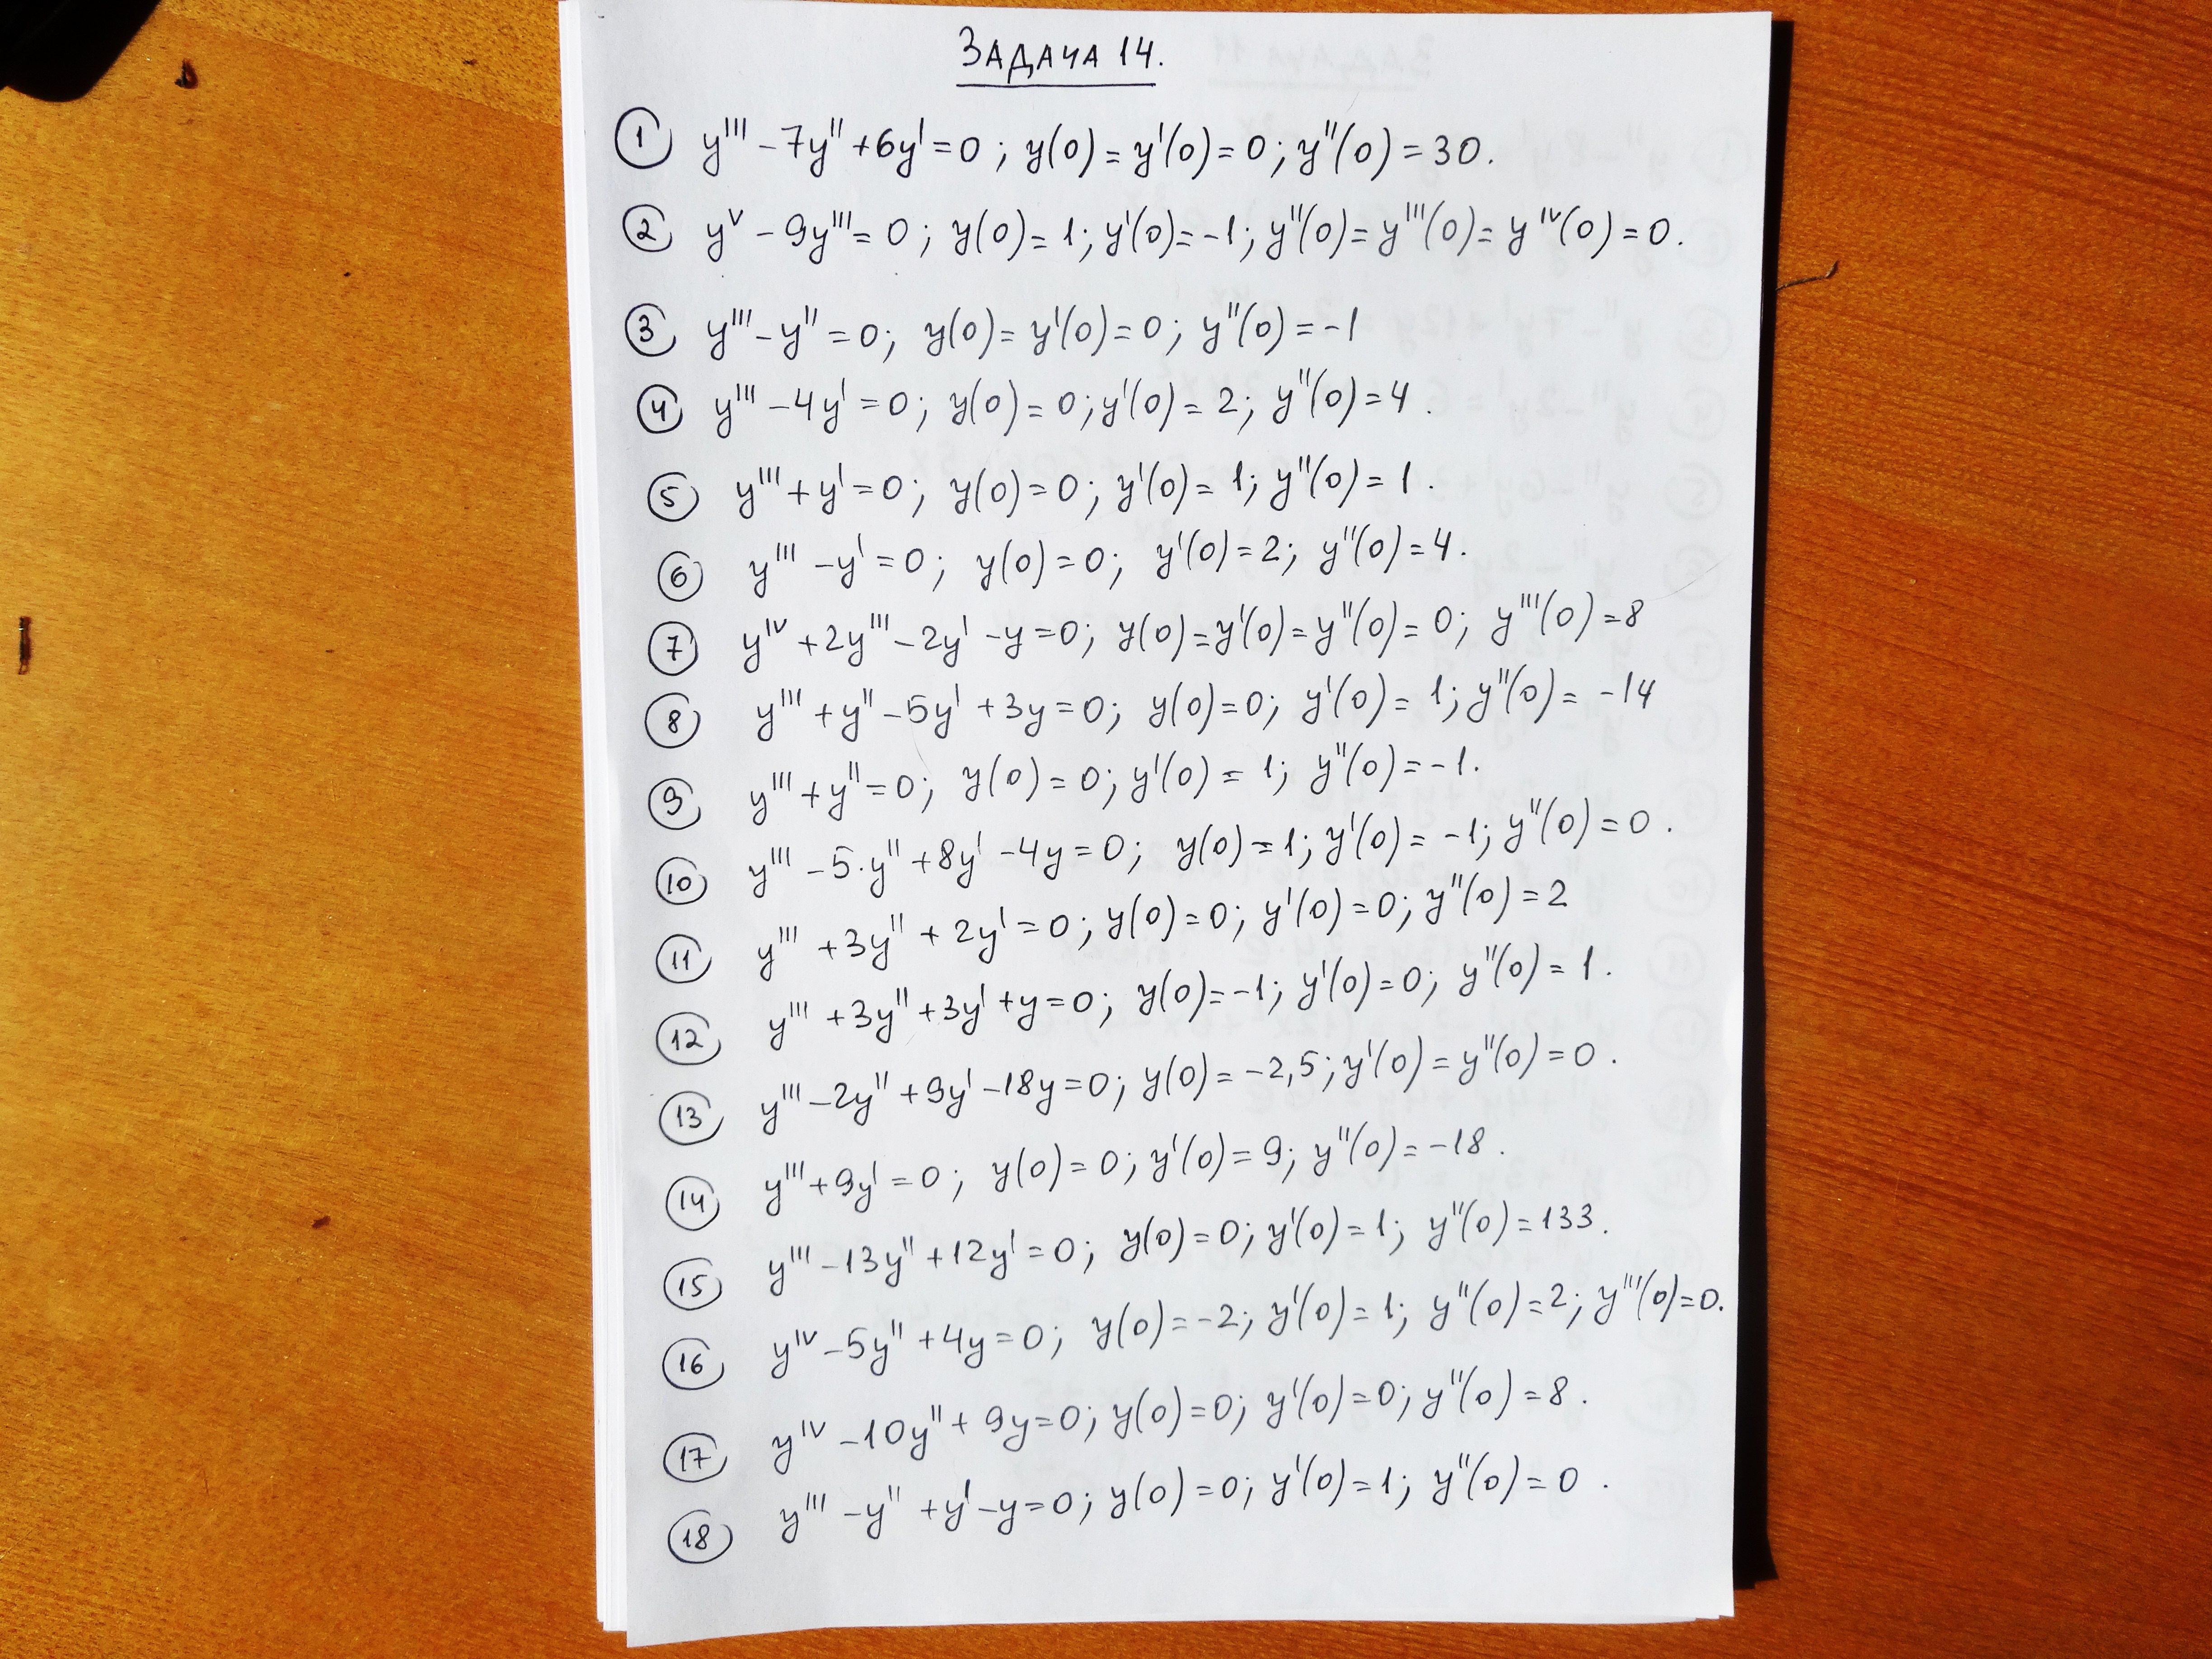 ЗАДАЧА 14.
1 y''' - 7y'' + 6y' = 0 ; y(0) = y'(0) = 0 ; y''(0) = 30.
2 yV - 9y''' = 0 ; y(0) = 1 ; y'(0) = -1 ; y''(0) = y'''(0) = yIV(0) = 0.
3 y''' - y'' = 0 ; y(0) = y'(0) = 0 ; y''(0) = -1
4 y''' - 4y' = 0 ; y(0) = 0 ; y'(0) = 2 ; y''(0) = 4 .
5 y''' + y' = 0 ; y(0) = 0 ; y'(0) = 1 ; y''(0) = 1 .
6 y''' - y' = 0 ; y(0) = 0 ; y'(0) = 2 ; y''(0) = 4 .
7 yIV + 2y''' - 2y' - y = 0 ; y(0) = y'(0) = y''(0) = 0 ; y'''(0) = 8
8 y''' + y'' - 5y' + 3y = 0 ; y(0) = 0 ; y'(0) = 1 ; y''(0) = -14
9 y''' + y'' = 0 ; y(0) = 0 ; y'(0) = 1 ; y''(0) = -1 .
10 y''' - 5·y'' + 8y' - 4y = 0 ; y(0) = 1 ; y'(0) = -1 ; y''(0) = 0 .
11 y''' + 3y'' + 2y' = 0 ; y(0) = 0 ; y'(0) = 0 ; y''(0) = 2
12 y''' + 3y'' + 3y' + y = 0 ; y(0) = -1 ; y'(0) = 0 ; y''(0) = 1 .
13 y''' - 2y'' + 9y' - 18y = 0 ; y(0) = -2,5 ; y'(0) = y''(0) = 0 .
14 y''' + 9y' = 0 ; y(0) = 0 ; y'(0) = 9 ; y''(0) = -18 .
15 y''' - 13y'' + 12y' = 0 ; y(0) = 0 ; y'(0) = 1 ; y''(0) = 133 .
16 yIV - 5y'' + 4y = 0 ; y(0) = -2 ; y'(0) = 1 ; y''(0) = 2 ; y'''(0) = 0.
17 yIV - 10y'' + 9y = 0 ; y(0) = 0 ; y'(0) = 0 ; y''(0) = 8 .
18 y''' - y'' + y' - y = 0 ; y(0) = 0 ; y'(0) = 1 ; y''(0) = 0 .